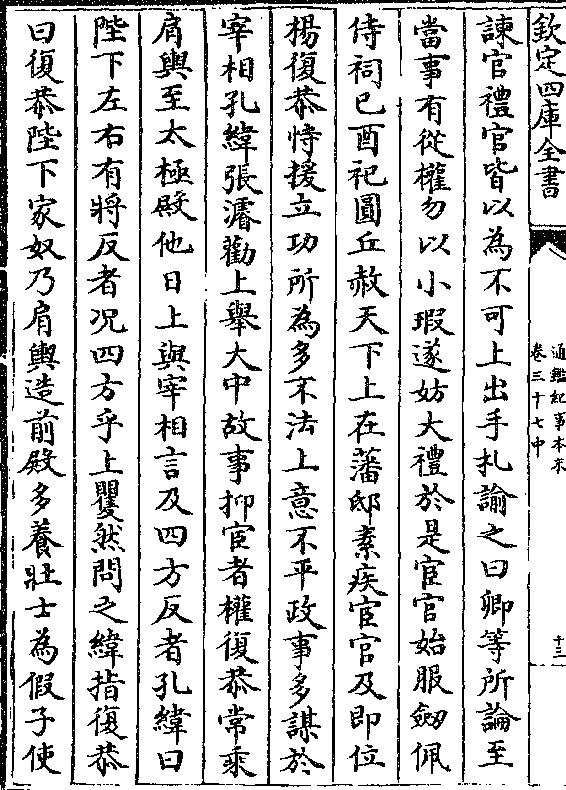 欽定四庫全書
通鑑紀事本末
卷三十七中
十三
諫官禮官皆以為不可上出手札諭之曰卿等所論至
當事有從權勿以小瑕遂妨大禮於是宦官始服劒佩
侍祠已酉祀圓丘赦天下上在藩邸素疾宦官及即位
楊復恭恃援立功所為多不法上意不平政事多謀於
宰相孔緯張濬勸上舉大中故事抑宦者權復恭常乘
肩輿至太極殿他日上與宰相言及四方反者孔緯曰
陛下左右有將反者况四方乎上瞿然問之緯指復恭
曰復恭陛下家奴乃肩輿造前殿多養壯士為假子使